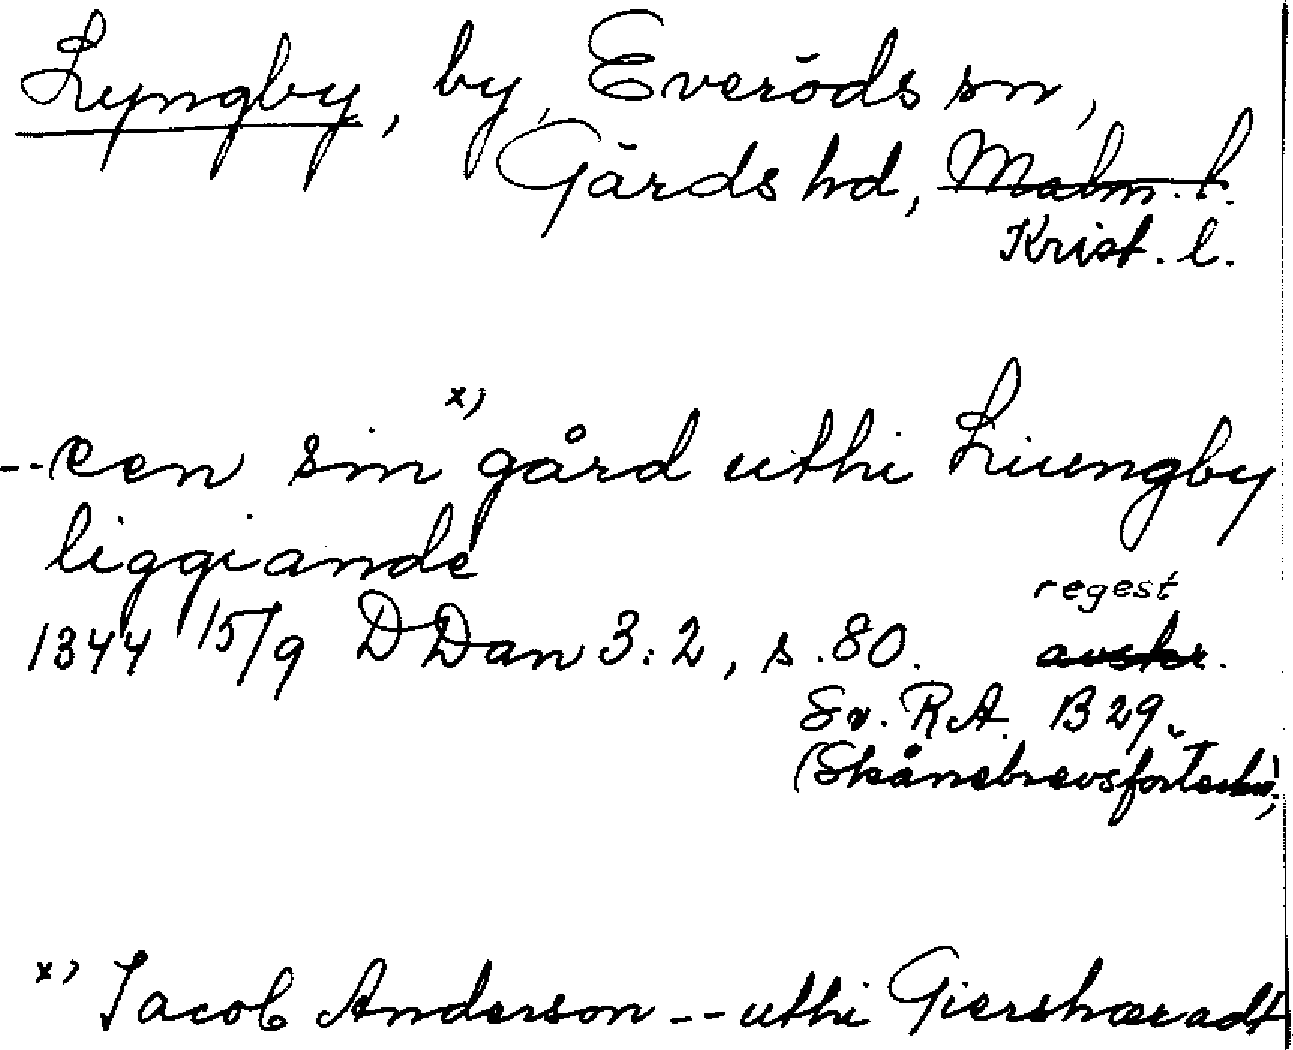 Lyngby, by, Everöds sn,
Gärds hd, Malm. l.
Krist. l.
x)
-- een sin gård uthi Liungby
liggiande
regest
1344 15/9 DDan 3:2, s. 80. avskr.
Sv. RA. B 29.
(Skånebrevsförteckn.)
x) Jacob Anderson -- uthi Giershæradt